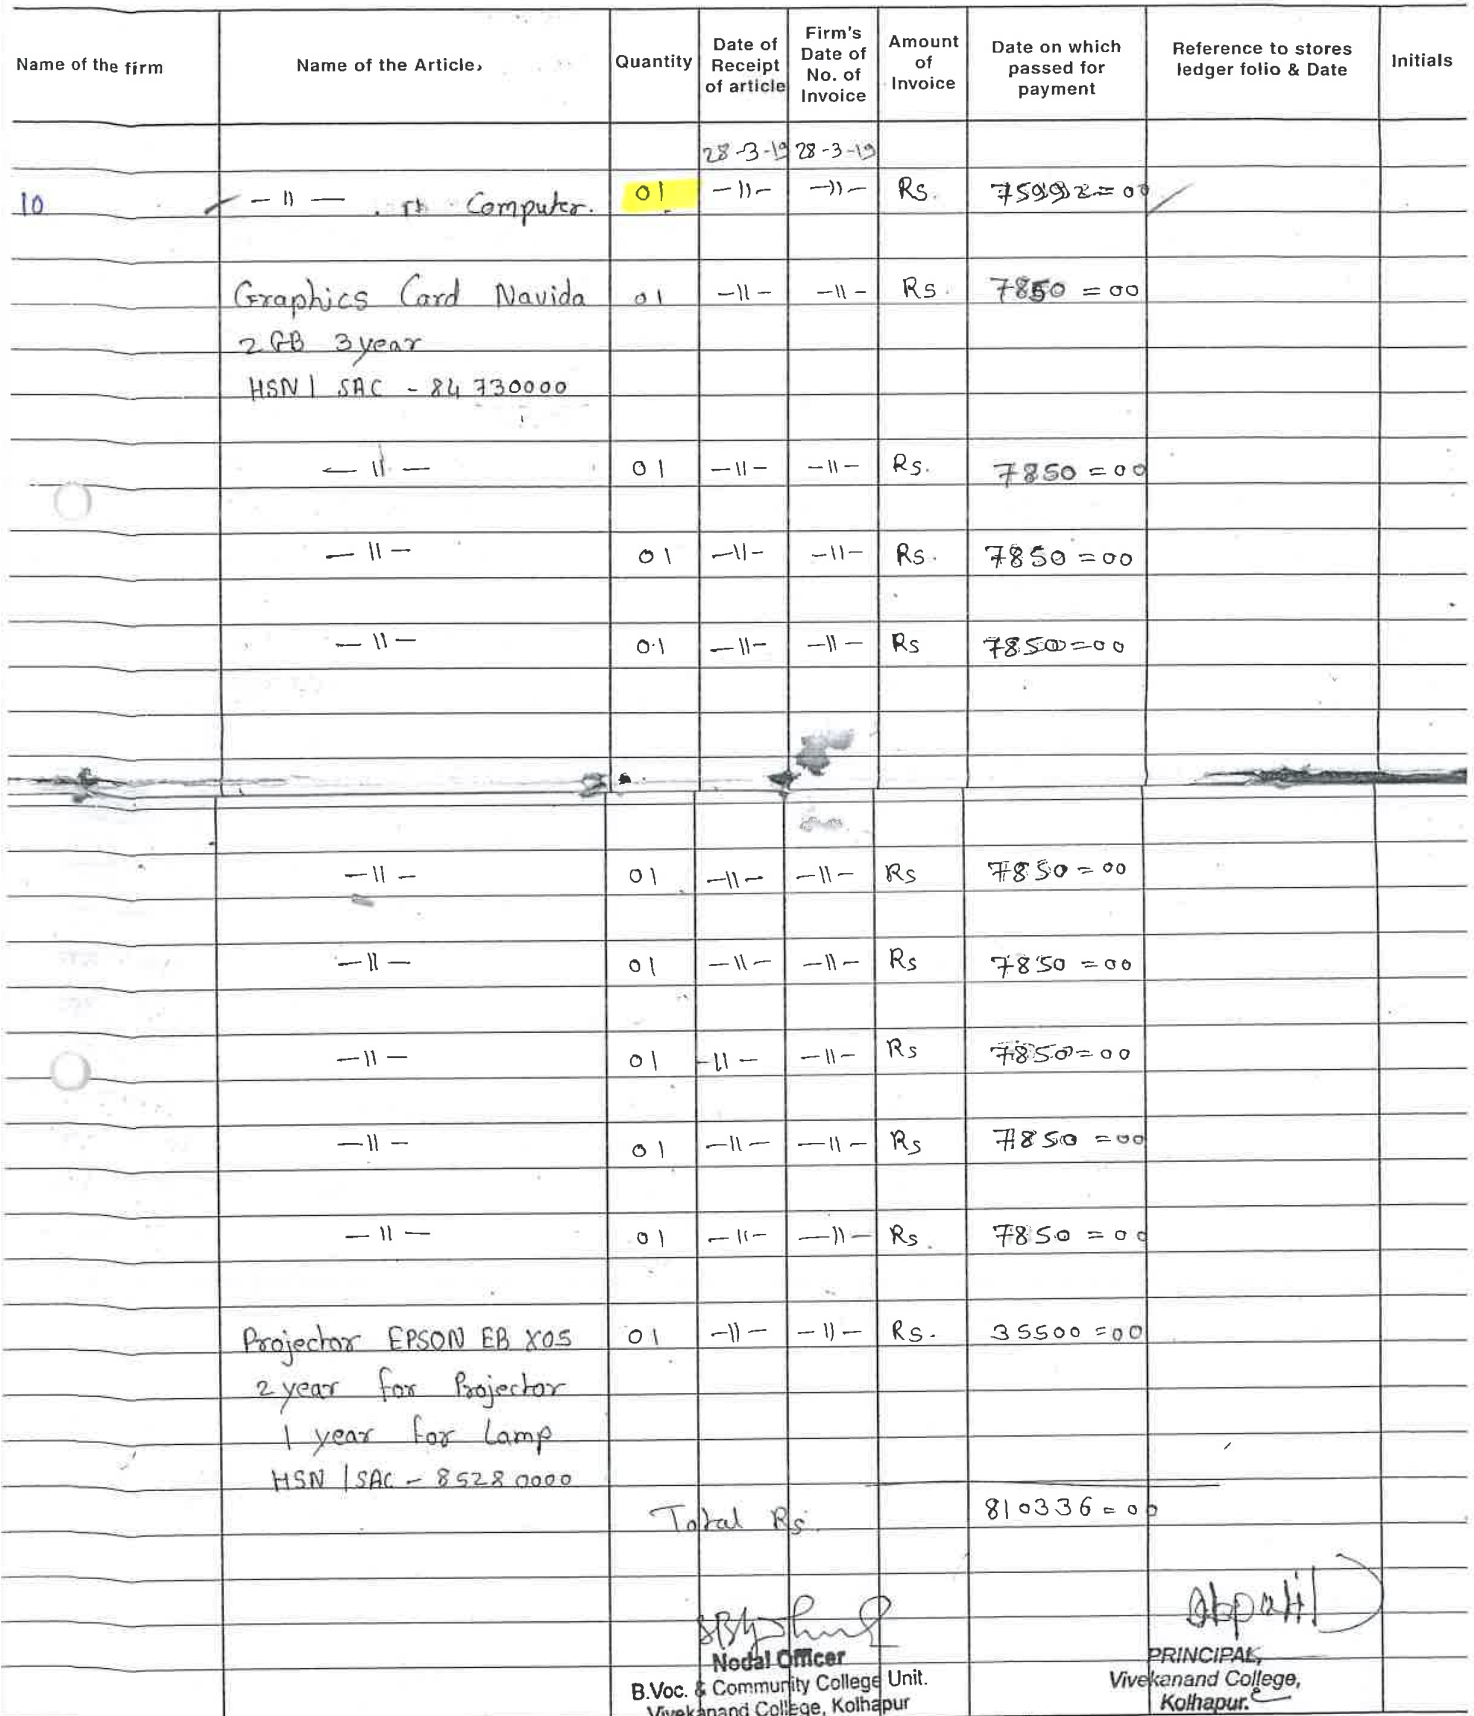 Name of the firm Name of the Article, Quantity Date of Receipt of article Firm's Date of No. of Invoice Amount of Invoice Date on which passed for payment Reference to stores ledger folio & Date Initials
28-3-19 28-3-19
10 -11- Computer. 01 -11- -11- Rs. 75992=00
Graphics Card Navida 01 -11- -11- Rs. 7850=00
2 GB 3 year
HSN | SAC - 84730000
-11- 01 -11- -11- Rs. 7850=00
-11- 01 -11- -11- Rs. 7850=00
-11- 01 -11- -11- Rs 7850=00
-11- 01 -11- -11- Rs 7850=00
-11- 01 -11- -11- Rs 7850=00
-11- 01 -11- -11- Rs 7850=00
-11- 01 -11- -11- Rs 7850=00
-11- 01 -11- -11- Rs. 7850=00
Projector EPSON EB X05 01 -11- -11- Rs. 35500=00
2 year for Projector
1 year for Lamp
HSN | SAC - 85280000
Total Rs. 810336=00
Nodal Officer
B.Voc. & Community College Unit.
Vivekanand College, Kolhapur
PRINCIPAL,
Vivekanand College,
Kolhapur.